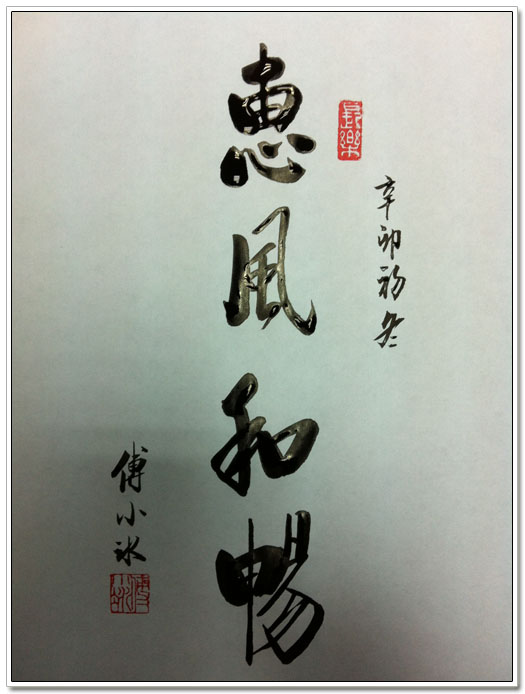 長樂
辛卯初冬
惠風和暢
傅小冰